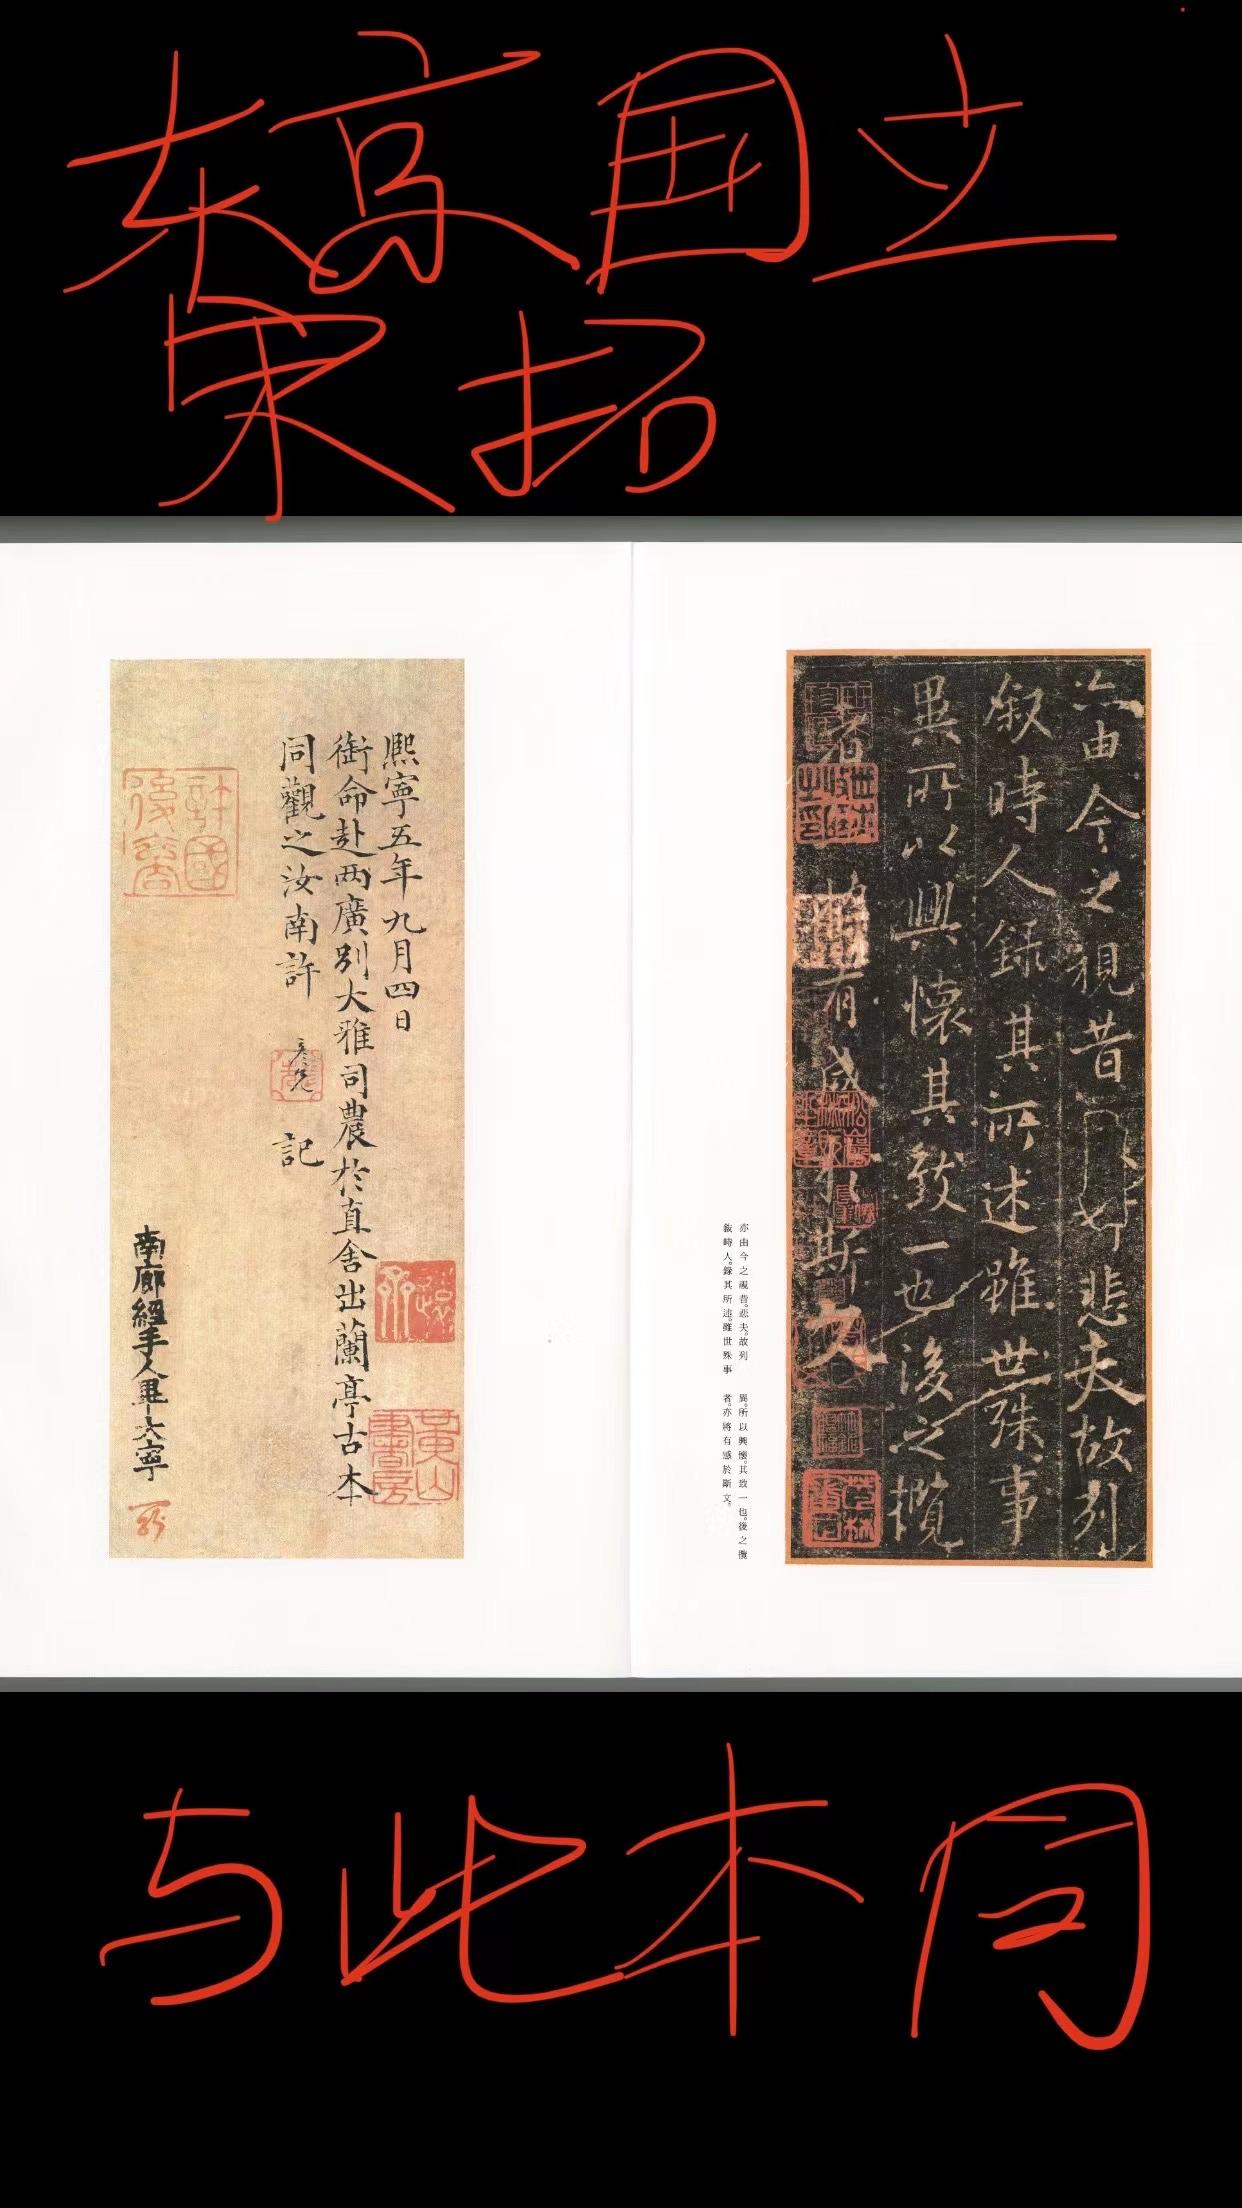 东京国立
宋拓
亦由今之視昔悲夫故列
叙時人錄其所述雖世殊事
異所以興懷其致一也後之攬
者
有感
斯文
亦由今之視昔。悲夫。故列
敍時人。錄其所述。雖世殊事
異。所以興懷。其致一也。後之攬
者。亦將有感於斯文。
熙寧五年九月四日
銜命赴两廣別大雅司農於直舍出蘭亭古本
同觀之汝南許彥先記
南廊經手人畢大寧
許國後裔
与此本同